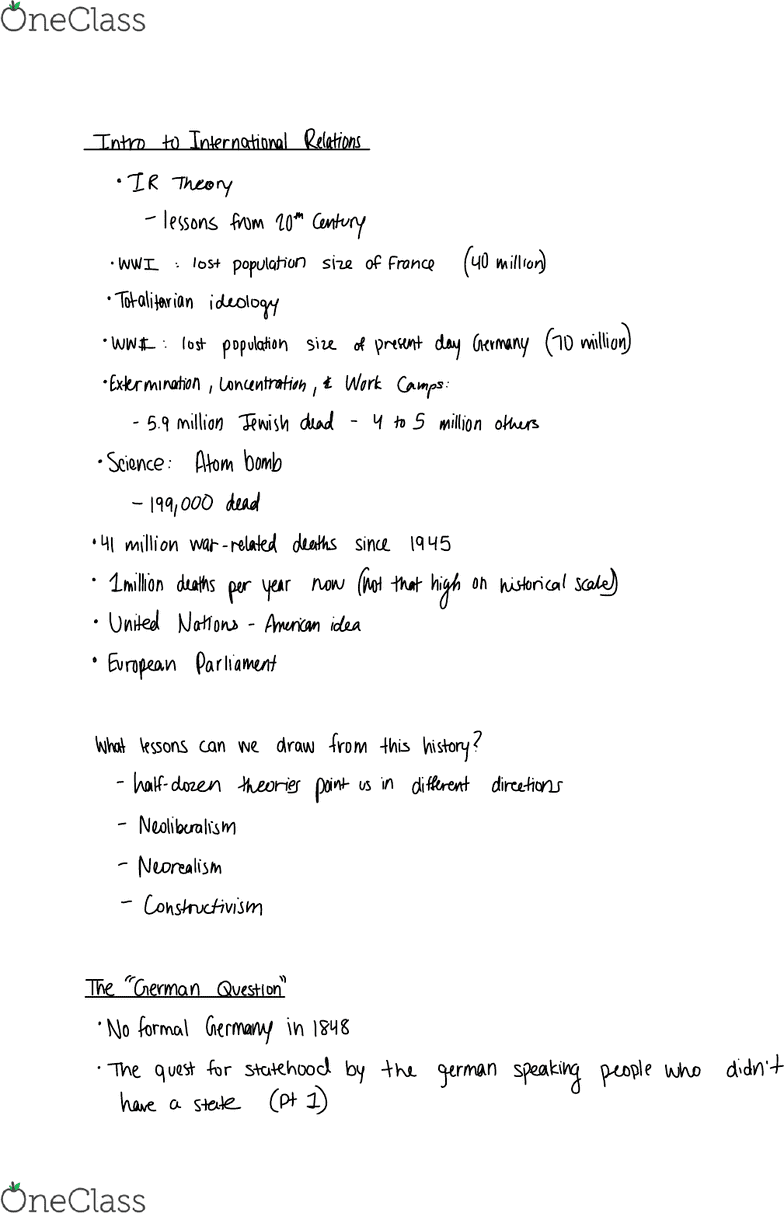 OneClass
Intro to International Relations
• IR Theory
- lessons from 20th Century
• WWI : lost population size of France (40 million)
• Totalitarian ideology
• WWII : lost population size of present day Germany (70 million)
• Extermination, Concentration, & Work Camps:
- 5.9 million Jewish dead - 4 to 5 million others
• Science: Atom bomb
- 199,000 dead
• 41 million war-related deaths since 1945
• 1 million deaths per year now (not that high on historical scale)
• United Nations - American idea
• European Parliament
What lessons can we draw from this history?
- half-dozen theories point us in different directions
- Neoliberalism
- Neorealism
- Constructivism
The "German Question"
• No formal Germany in 1848
• The quest for statehood by the german speaking people who didn't
have a state (pt 1)
OneClass